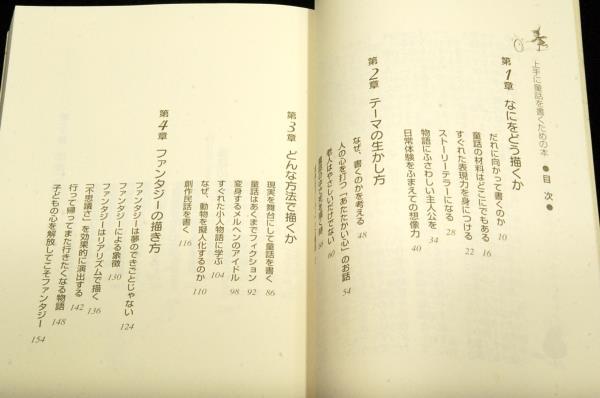 上手に童話を書くための本 ● 目 次 ●
第1章 なにをどう描くか
だれに向かって書くのか 10
童話の材料はどこにでもある 16
すぐれた表現力を身につける 22
ストーリーテラーになる 28
物語にふさわしい主人公を 34
日常体験をふまえての想像力 40
第2章 テーマの生かし方
なぜ、書くのかを考える 48
人の心を打つ「あたたかい心」のお話 54
老人はやさしいだけじゃない 60
第3章 どんな方法で描くか
現実を舞台にして童話を書く 86
童話はあくまでフィクション 92
変身するメルヘンのアイドル 98
すぐれた小人物語に学ぶ 104
なぜ、動物を擬人化するのか 110
創作民話を書く 116
第4章 ファンタジーの描き方
ファンタジーは夢のできごとじゃない 124
ファンタジーによる象徴 130
ファンタジーはリアリズムで描く 136
「不思議さ」を効果的に演出する 142
行って帰ってまた行きたくなる物語 148
子どもの心を解放してこそファンタジー 154